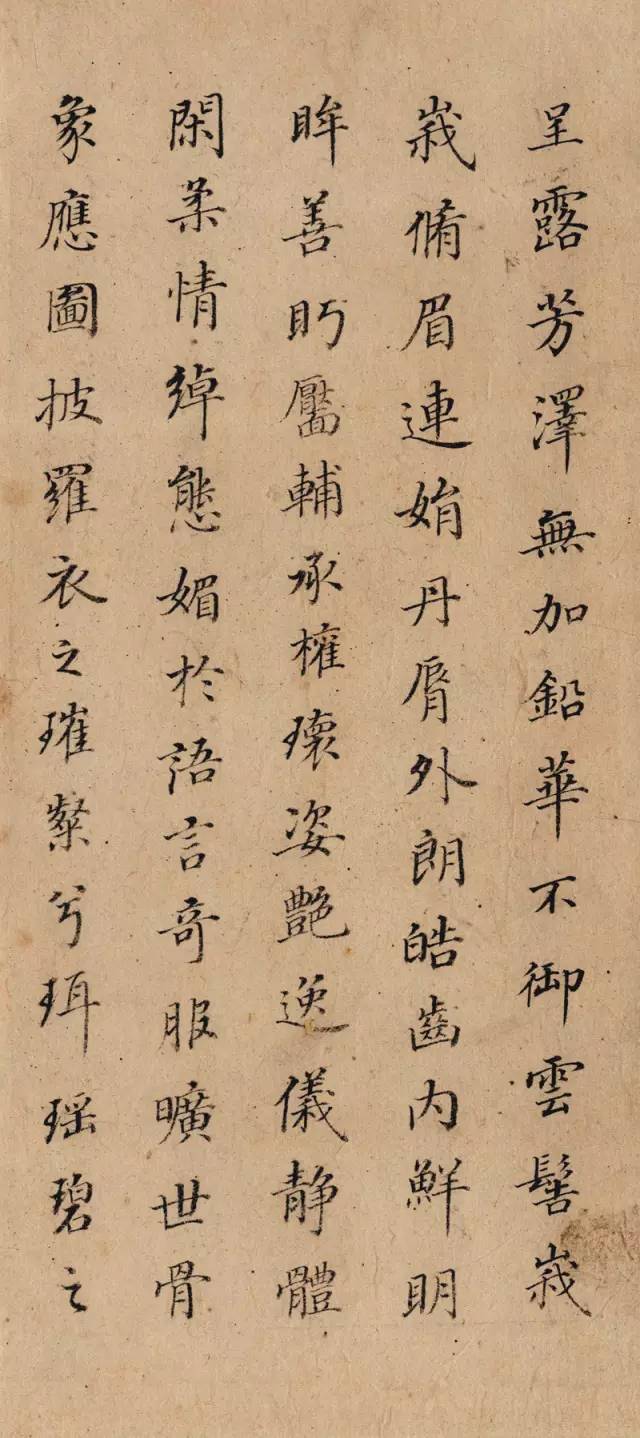 呈露芳澤無加鉛華不御雲髻峩
峩脩眉連娟丹脣外朗皓齒内鮮明
眸善眄靨輔承權瓌姿艷逸儀静體
閑柔情綽態媚於語言奇服曠世骨
象應圖披羅衣之璀粲兮珥瑶碧之